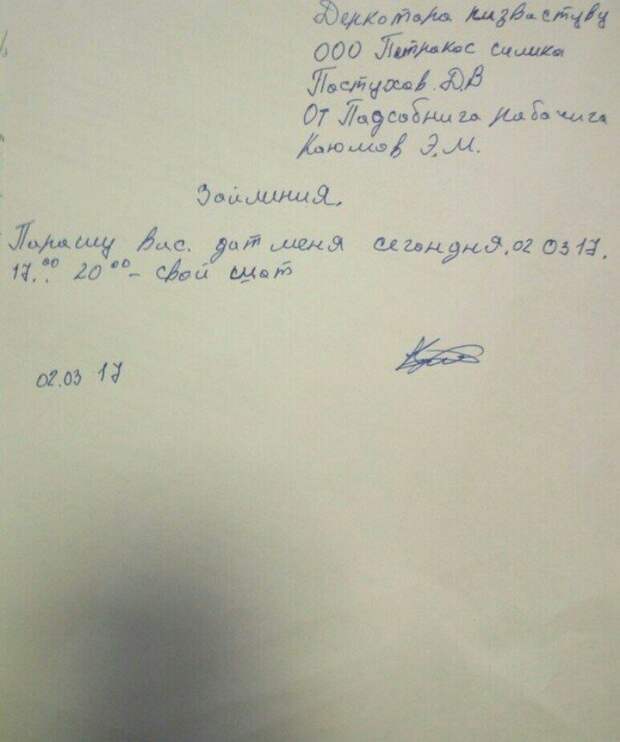 Деркотара пизваству
ООО Петракас силика
Пастухов Д.В
От Падсобнига рабачига
Каюмов Э.М.
Займиния.
Парашу Вас. дат меня сегондня. 02 03 17.
17.00 20 00 – свой щот
02.03 17